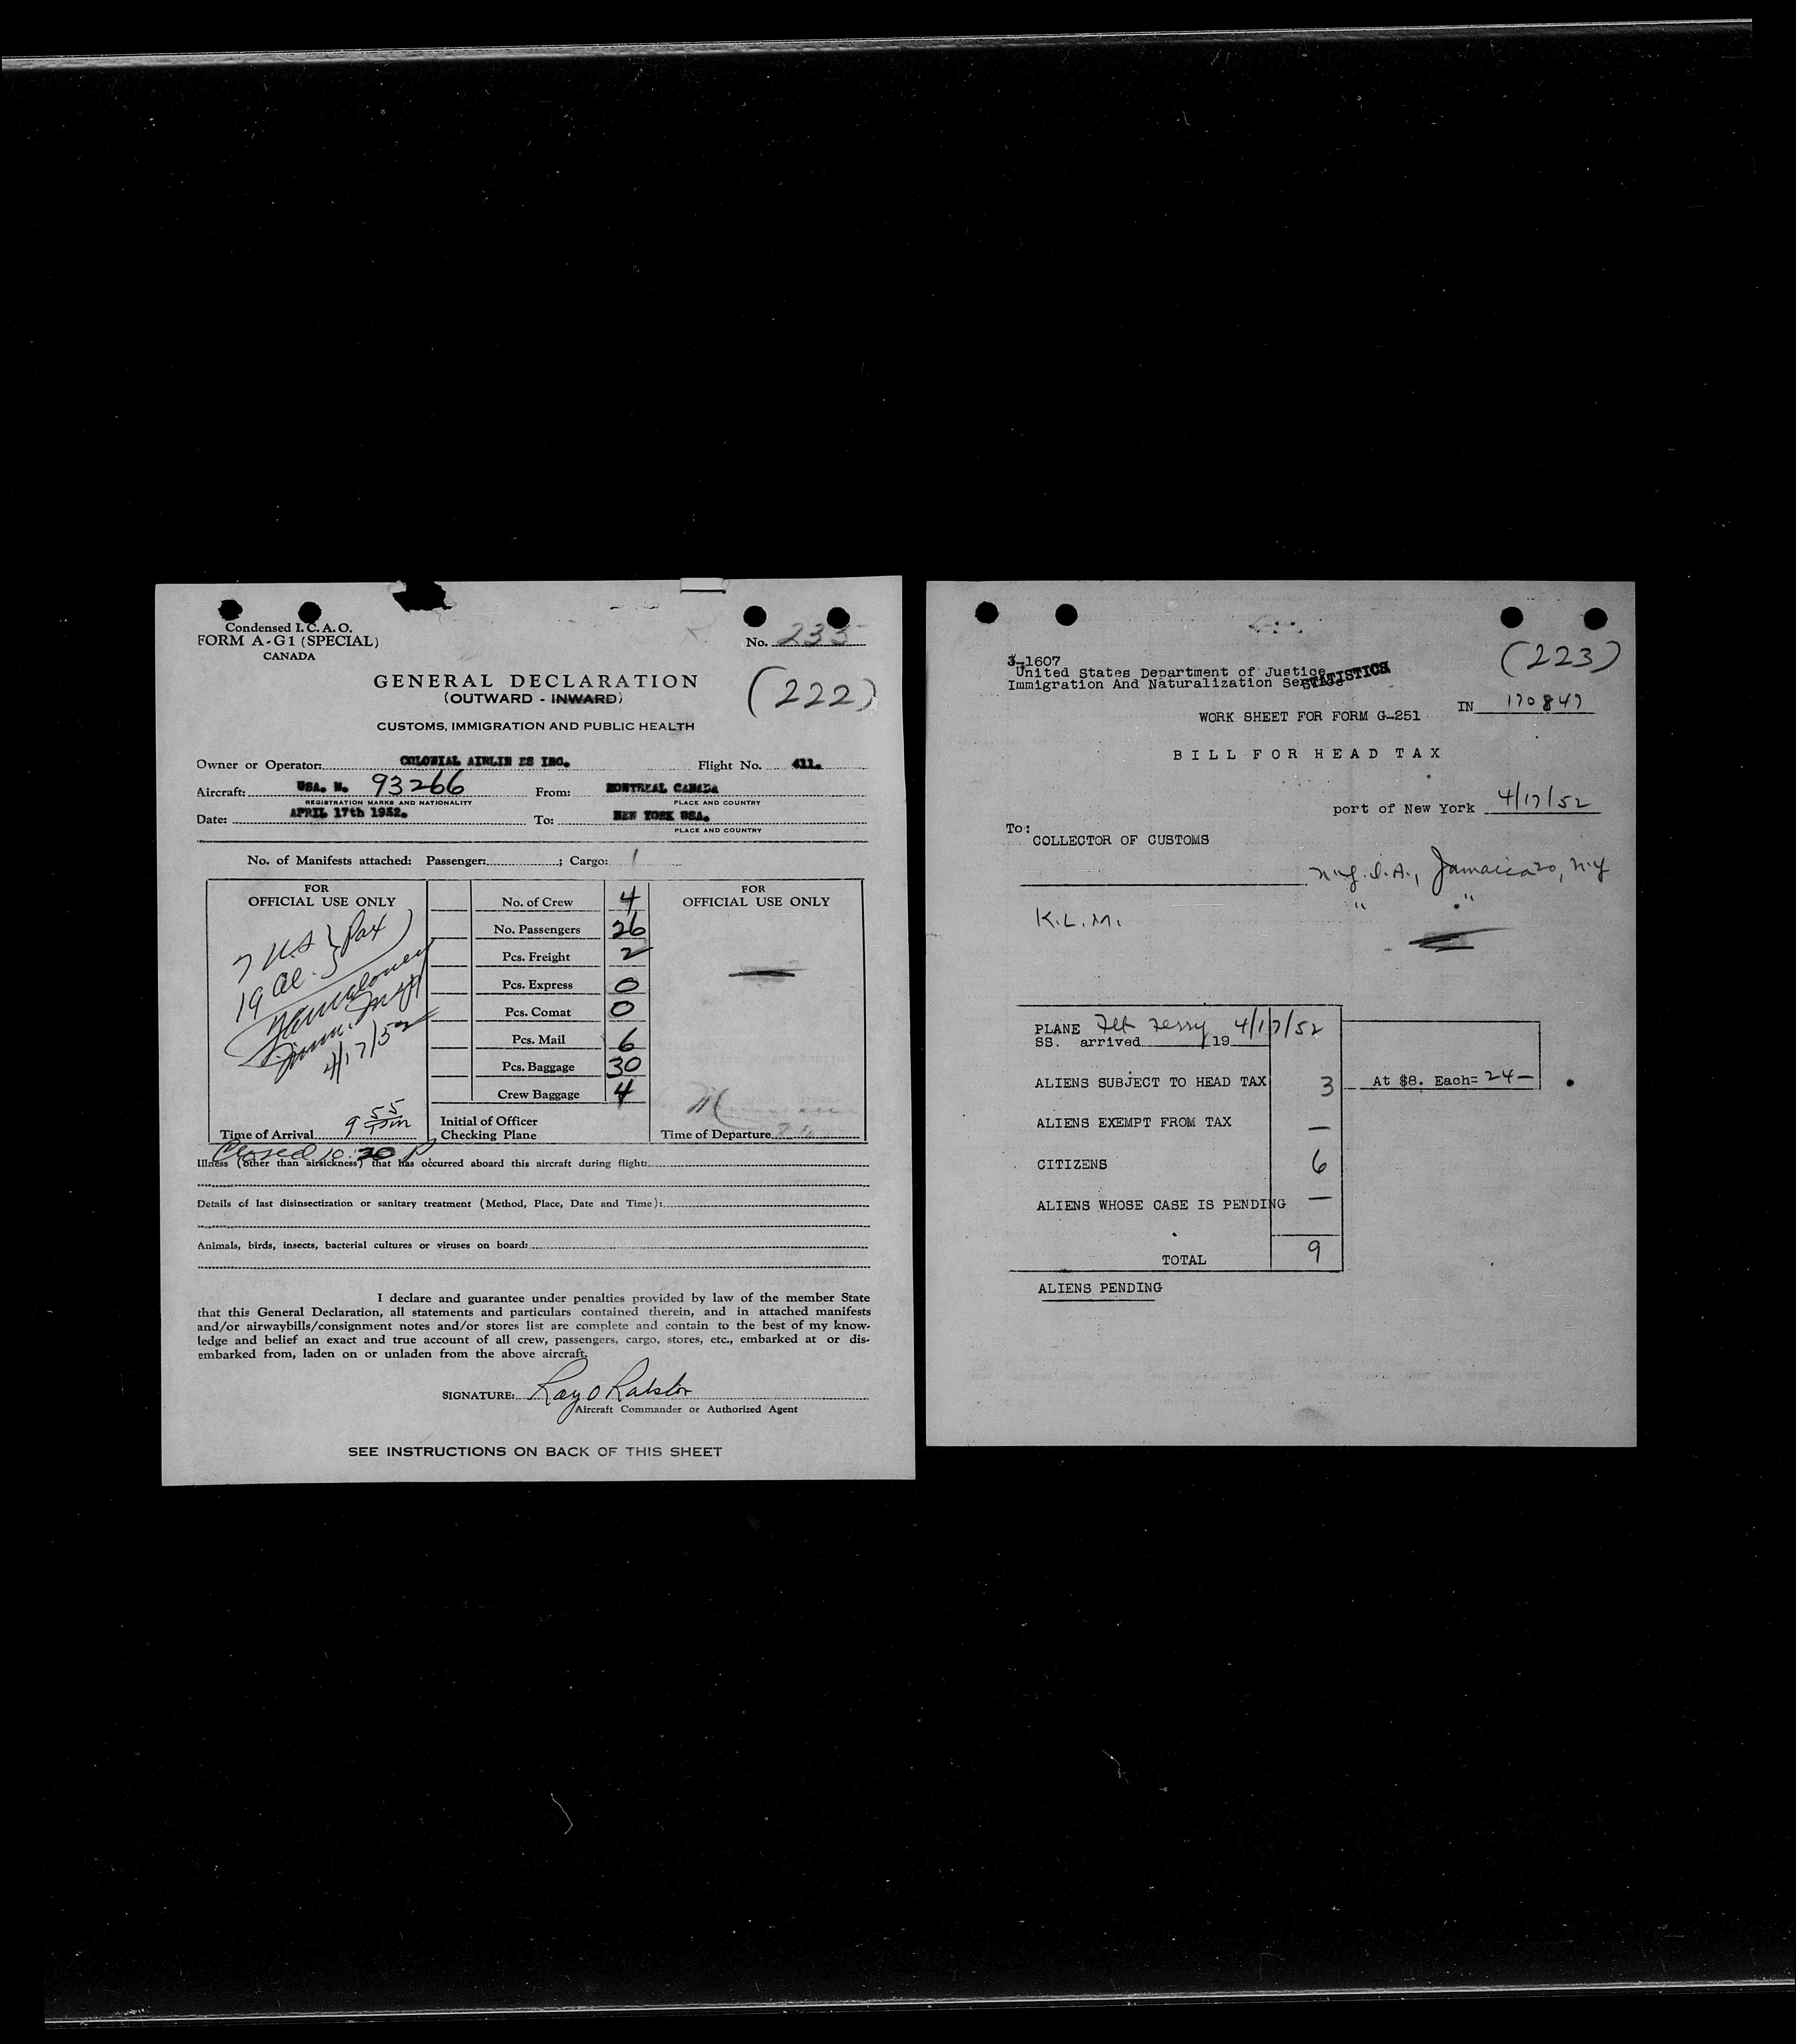 Condensed I.C.A.O.
FORM A-G1 (SPECIAL)
CANADA
No. 235
GENERAL DECLARATION
(OUTWARD - INWARD)
(222)
CUSTOMS, IMMIGRATION AND PUBLIC HEALTH
Owner or Operator: COLONIAL AIRLIN ES INC. Flight No. 411.
Aircraft: USA. N. 93266 From: MONTREAL CANADA
REGISTRATION MARKS AND NATIONALITY PLACE AND COUNTRY
Date: APRIL 17th 1952. To: NEW YORK USA.
PLACE AND COUNTRY
No. of Manifests attached: Passenger: ; Cargo: 1
FOR
OFFICIAL USE ONLY
7 U.S } Pax
19 al.
4/17/52
Time of Arrival 9 55 pm
Closed 10:30 P
No. of Crew 4
No. Passengers 26
Pcs. Freight 2
Pcs. Express 0
Pcs. Comat 0
Pcs. Mail 6
Pcs. Baggage 30
Crew Baggage 4
Initial of Officer
Checking Plane
FOR
OFFICIAL USE ONLY
Time of Departure
Illness (other than airsickness) that has occurred aboard this aircraft during flight:
Details of last disinsectization or sanitary treatment (Method, Place, Date and Time):
Animals, birds, insects, bacterial cultures or viruses on board:
I declare and guarantee under penalties provided by law of the member State
that this General Declaration, all statements and particulars contained therein, and in attached manifests
and/or airwaybills/consignment notes and/or stores list are complete and contain to the best of my know-
ledge and belief an exact and true account of all crew, passengers, cargo, stores, etc., embarked at or dis-
embarked from, laden on or unladen from the above aircraft.
SIGNATURE: Ray O Ralston
Aircraft Commander or Authorized Agent
SEE INSTRUCTIONS ON BACK OF THIS SHEET
(223)
3-1607
United States Department of Justice
Immigration And Naturalization Service
STATISTICS
IN 170847
WORK SHEET FOR FORM G-251
BILL FOR HEAD TAX
port of New York 4/17/52
To:
COLLECTOR OF CUSTOMS
N.Y.I.A., Jamaica 20, N.Y
" "
K.L.M.
PLANE Flt 4/17/52
SS. arrived 19
ALIENS SUBJECT TO HEAD TAX 3 At $8. Each= 24—
ALIENS EXEMPT FROM TAX —
CITIZENS 6
ALIENS WHOSE CASE IS PENDING —
TOTAL 9
ALIENS PENDING